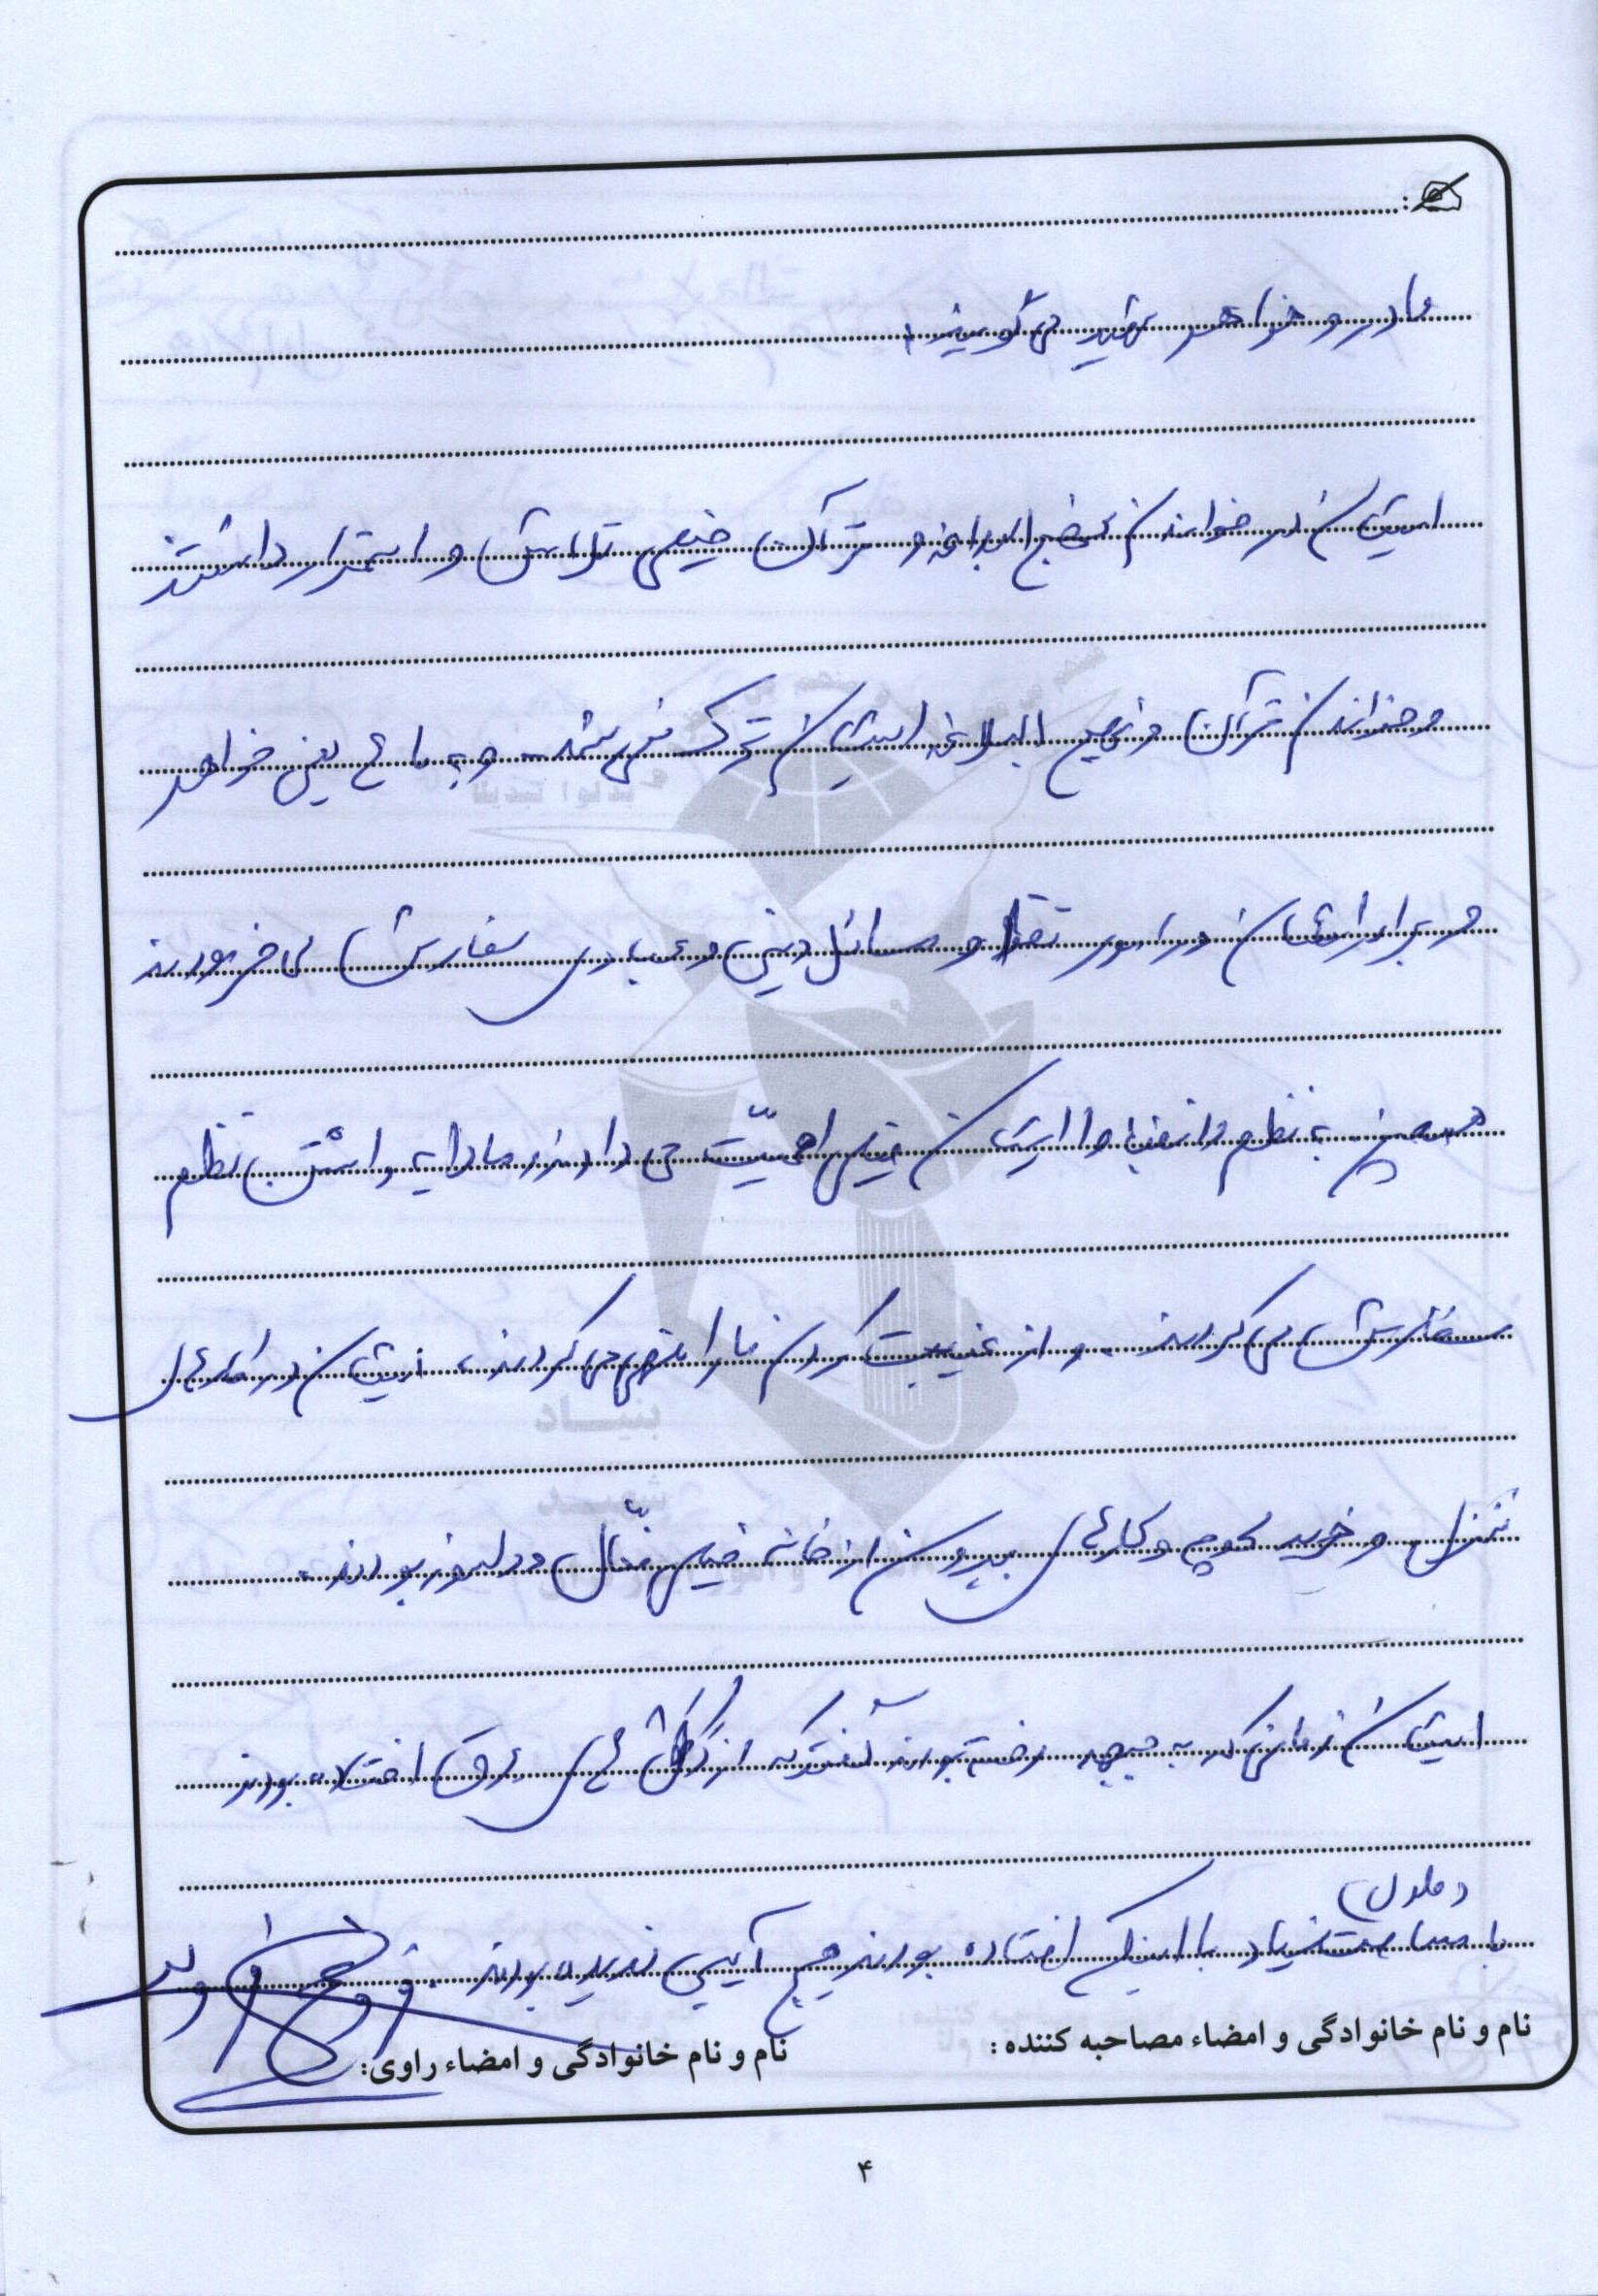 مادر و خواهر شهید می گویند:
ایشان در خواندن نهج البلاغه و قرآن خیلی تلاش و استمرار داشتند
و خواندن قرآن و نهج البلاغه ایشان ترک نمی شد. و به ما ها یعنی خواهر
و برادرانشان در امور تقوا و مسائل دینی و عبادی سفارش می فرمودند
همچنین به نظم و انضباط ایشان خیلی اهمیّت می دادند و ما را به داشتن نظم
سفارش می کردند. و از غیبت کردن ما را نهی می کردند. ایشان در کارهای
منزل و خرید و کارهای بیرون از خانه خیلی فعّال و دلسوز بودند.
ایشان زمانی که به جبهه رفته بودند گفتند که از دکل های برق افتاده بودند
و طول
با مسافت زیاد با اینکه افتاده بودند هیچ آسیبی ندیده بودند.
نام و نام خانوادگی و امضاء مصاحبه کننده:
نام و نام خانوادگی و امضاء راوی:
۴
بنیاد